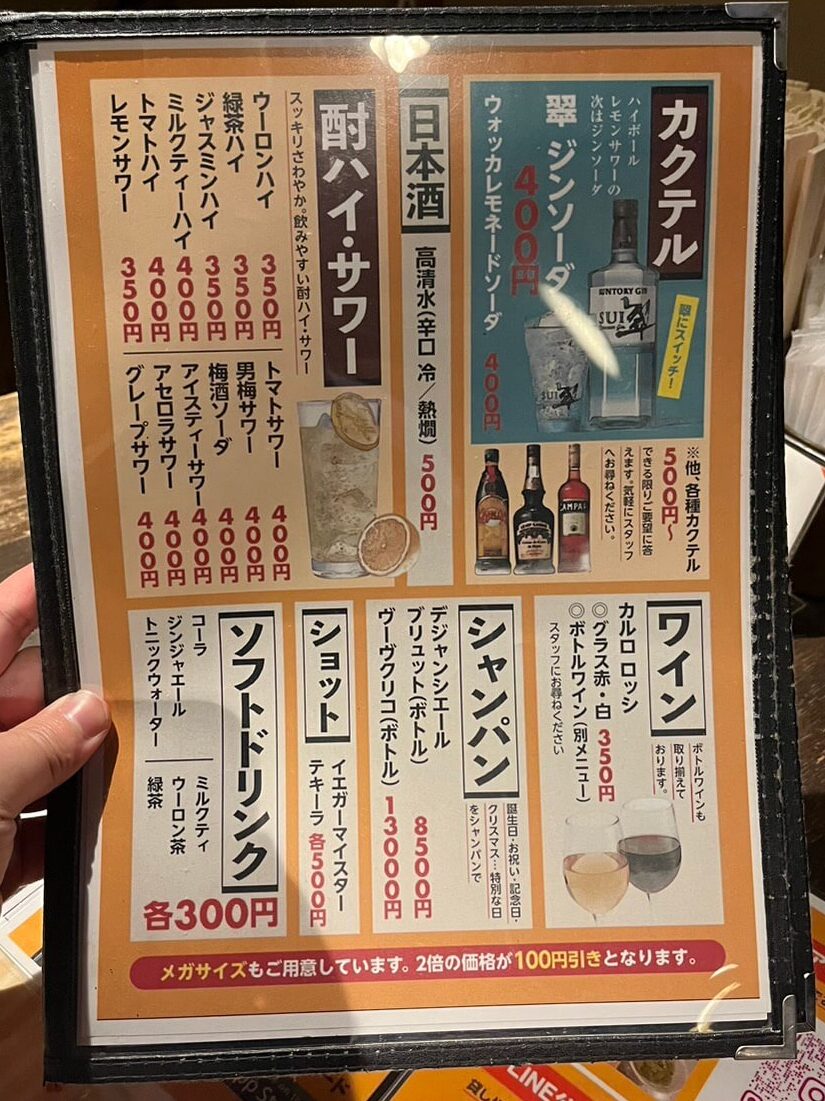 カクテル
ハイボール
レモンサワーの
次はジンソーダ
翠 ジンソーダ
400円
ウォッカレモネードソーダ 400円
SUNTORY GIN
SUI
翠
SUI
翠にスイッチ!
※他、各種カクテル
500円〜
できる限りご要望に答
えます。気軽にスタッフ
へお尋ねください。
CAMPARI
日本酒
高清水(辛口 冷/熱燗) 500円
酎ハイ・サワー
スッキリさわやか。飲みやすい酎ハイ・サワー
ウーロンハイ 350円
緑茶ハイ 350円
ジャスミンハイ 350円
ミルクティーハイ 400円
トマトハイ 400円
レモンサワー 350円
トマトサワー 400円
男梅サワー 400円
梅酒ソーダ 400円
アイスティーサワー 400円
アセロラサワー 400円
グレープサワー 400円
ワイン
ボトルワインも
取り揃えて
おります。
カルロ ロッシ
◎グラス赤・白 350円
◎ボトルワイン(別メニュー)
スタッフにお尋ねください
シャンパン
誕生日・お祝い・記念日・
クリスマス…特別な日
をシャンパンで
デジャンシエール
ブリュット(ボトル) 8500円
ヴーヴクリコ(ボトル) 13000円
ショット
イエガーマイスター
テキーラ 各500円
ソフトドリンク
コーラ
ジンジャエール
トニックウォーター
ミルクティ
ウーロン茶
緑茶
各300円
メガサイズもご用意しています。2倍の価格が100円引きとなります。